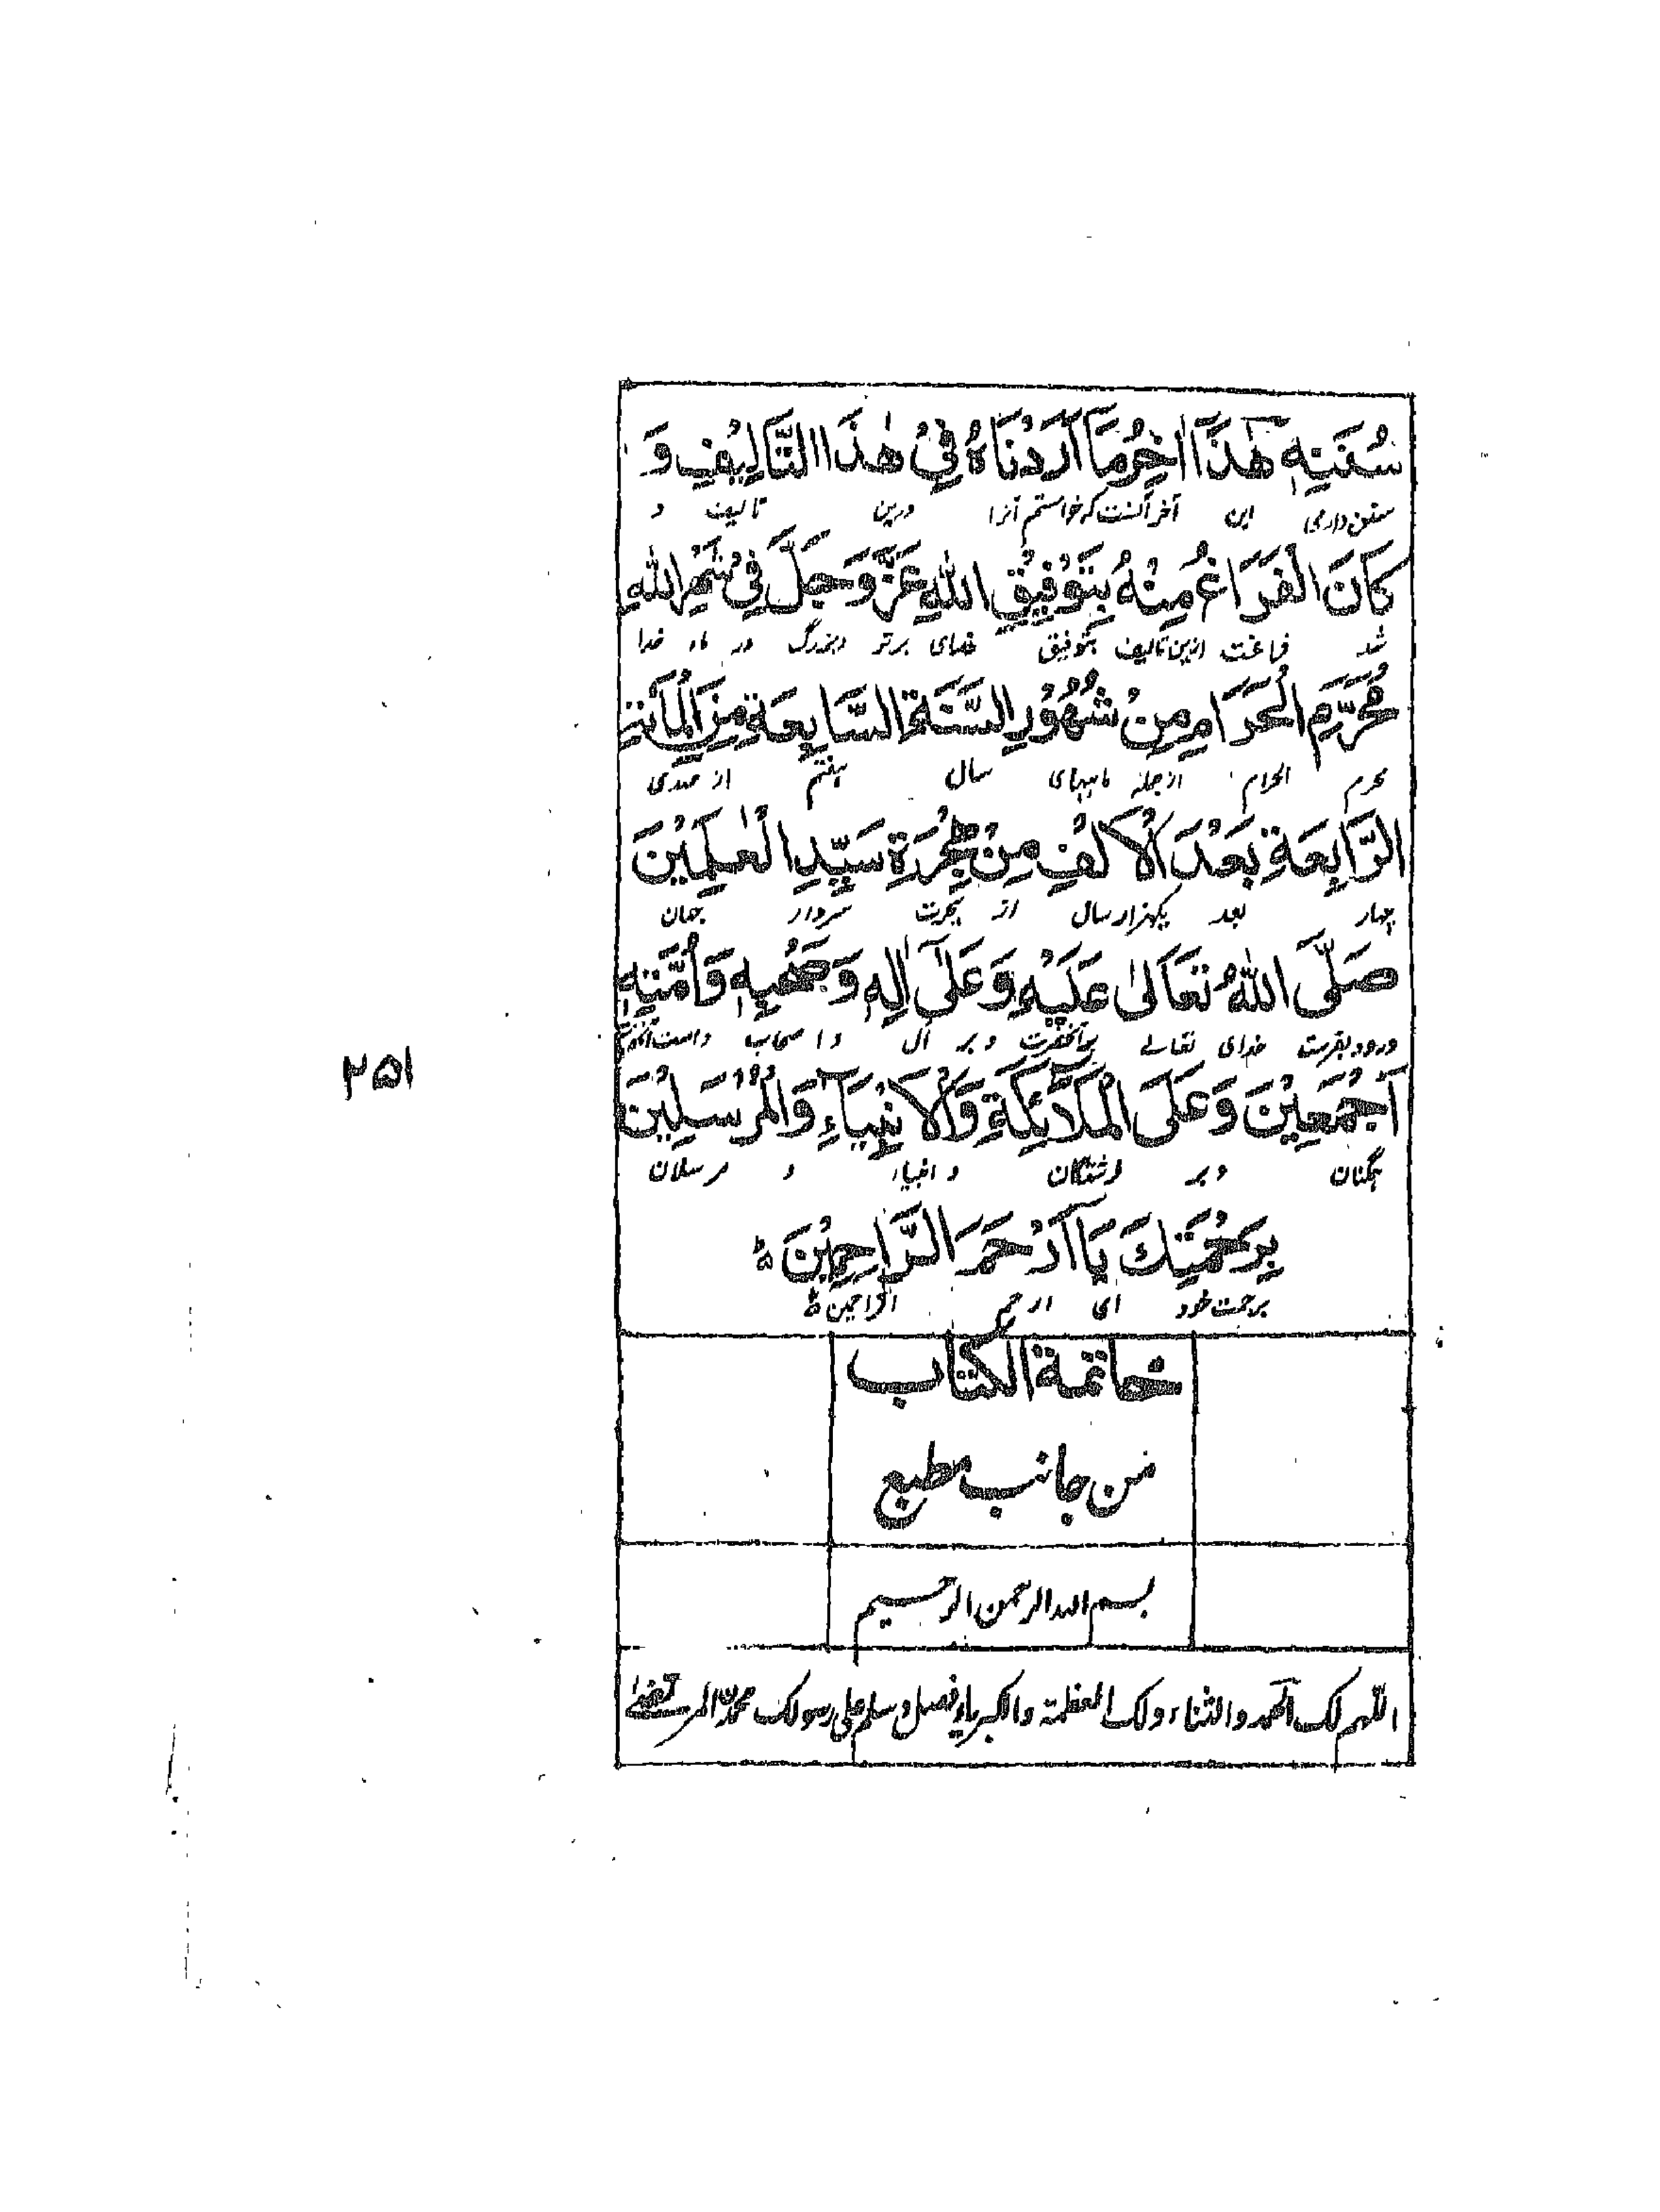 سُنَنِهٖ هٰذَآ اٰخِرُ مَآ اَرَدْنَاهُ فِيْ هٰذَا التَّالِيْفِ وَ
سنن دارمی این آخر آنست که خواستم آنرا درین تالیف و
كَانَ الْفَرَاغُ مِنْهُ بِتَوْفِيْقِ اللهِ عَزَّ وَجَلَّ فِيْ شَهْرِ اللهِ
شد فراغت ازین تالیف بتوفیق خدای برتر و بزرگ در ماه خدا
مُحَرَّمِ الْحَرَامِ مِنْ شُهُوْرِ السَّنَةِ السَّابِعَةِ مِنَ الْمِائَةِ
محرم الحرام از جمله ماههای سال هفتم از صدی
الرَّابِعَةِ بَعْدَ الْاَلْفِ مِنْ هِجْرَةِ سَيِّدِ الْعٰلَمِيْنَ
چهار بعد یکهزار سال از هجرت سردار جهان
صَلَّى اللهُ تَعَالىٰ عَلَيْهِ وَعَلىٰٓ اٰلِهٖ وَصَحْبِهٖ وَاُمَّتِهٖ
درود بفرست خدای تعالے برآنحضرت و بر آل و اصحاب و امت
۲۵۱
اَجْمَعِيْنَ وَعَلَى الْمَلَآئِكَةِ وَالْاَنْبِيَآءِ وَالْمُرْسَلِيْنَ
همگنان و بر فرشتگان و انبیاء و مرسلان
بِرَحْمَتِكَ يَآ اَرْحَمَ الرَّاحِمِيْنَ ؕ
برحمت خود ای ارحم الراحمین ؕ
خاتمة الكتاب
من جانب مطبع
بسم الله الرحمن الرحیم
اللّٰهم لک الحمد والثناء ولک العظمة والکبریاء فصل وسلم علی رسولک محمدن المرتضیٰ